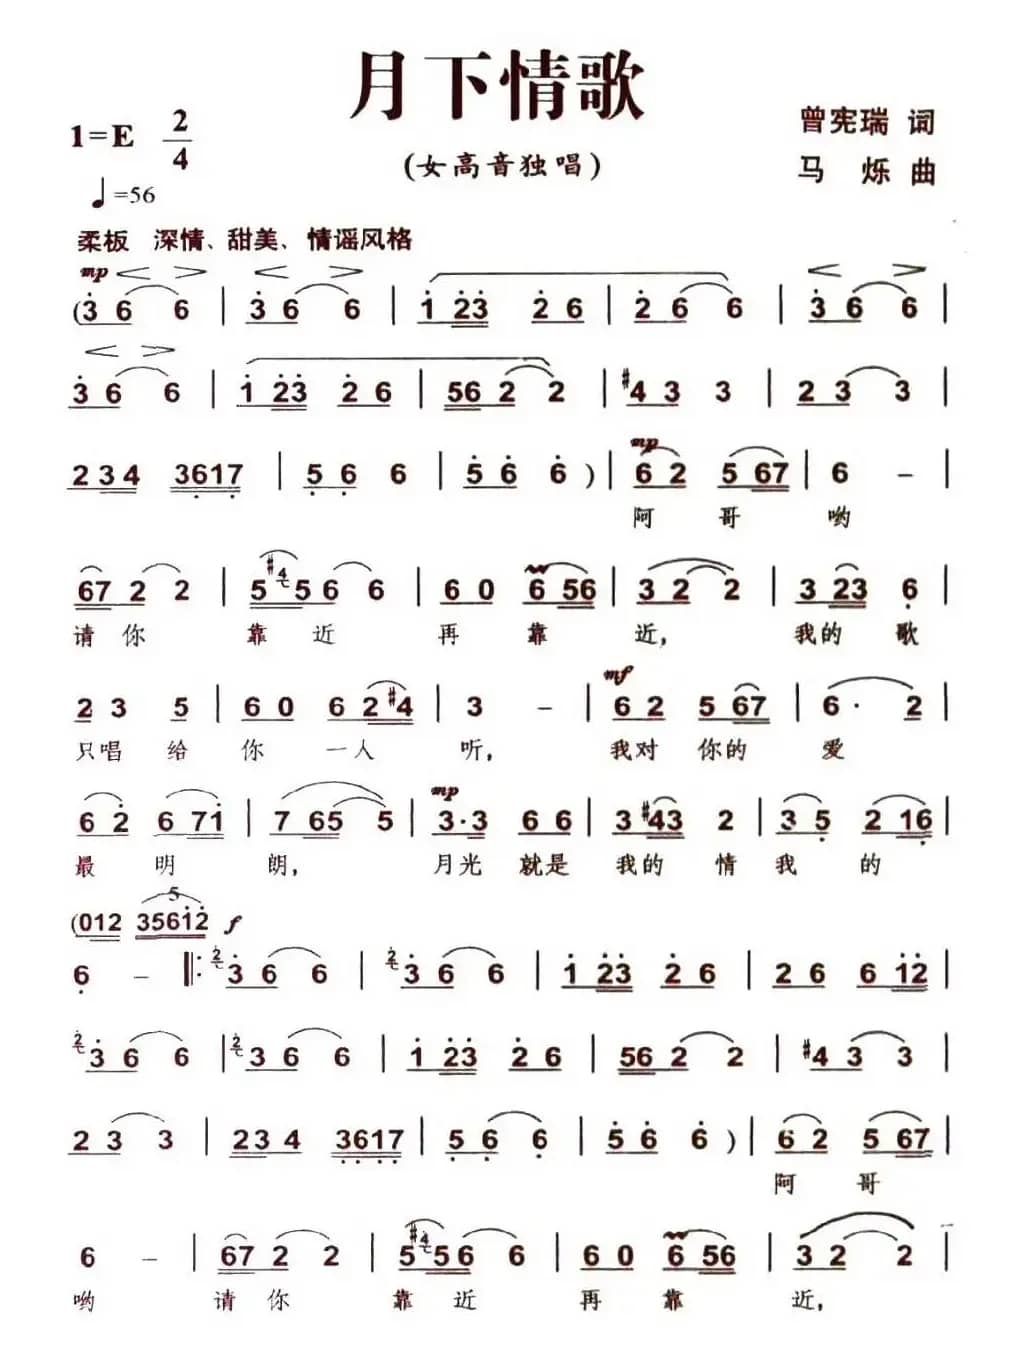 月下情歌
1=E 2/4
(女高音独唱)
曾宪瑞 词
马 烁 曲
♩=56
柔板 深情、甜美、情谣风格
mp
(3 6 6 | 3 6 6 | 1 23 2 6 | 2 6 6 | 3 6 6 |
3 6 6 | 1 23 2 6 | 56 2 2 | #4 3 3 | 2 3 3 |
mp
234 3617 | 5 6 6 | 5 6 6 ) | 6 2 5 67 | 6 – |
阿 哥 哟
67 2 2 | 5 #4 5 6 6 | 6 0 6 56 | 3 2 2 | 3 23 6 |
请 你 靠 近 再 靠 近, 我的 歌
mf
2 3 5 | 6 0 6 2#4 | 3 – | 6 2 5 67 | 6· 2 |
只唱 给 你 一人 听, 我对 你的 爱
mp
6 2 6 71 | 7 65 5 | 3·3 6 6 | 3 #43 2 | 3 5 2 16 |
最 明 朗, 月光 就是 我的 情 我 的
(012 35612 5 f
6 – ‖: 2 3 6 6 | 2 3 6 6 | 1 23 2 6 | 2 6 6 12 |
2 3 6 6 | 2 3 6 6 | 1 23 2 6 | 56 2 2 | #4 3 3 |
2 3 3 | 23 4 3617 | 5 6 6 | 5 6 6 ) | 6 2 5 67 |
阿 哥
6 – | 67 2 2 | 5 #4 5 6 6 | 6 0 6 56 | 3 2 2 |
哟 请 你 靠 近 再 靠 近,